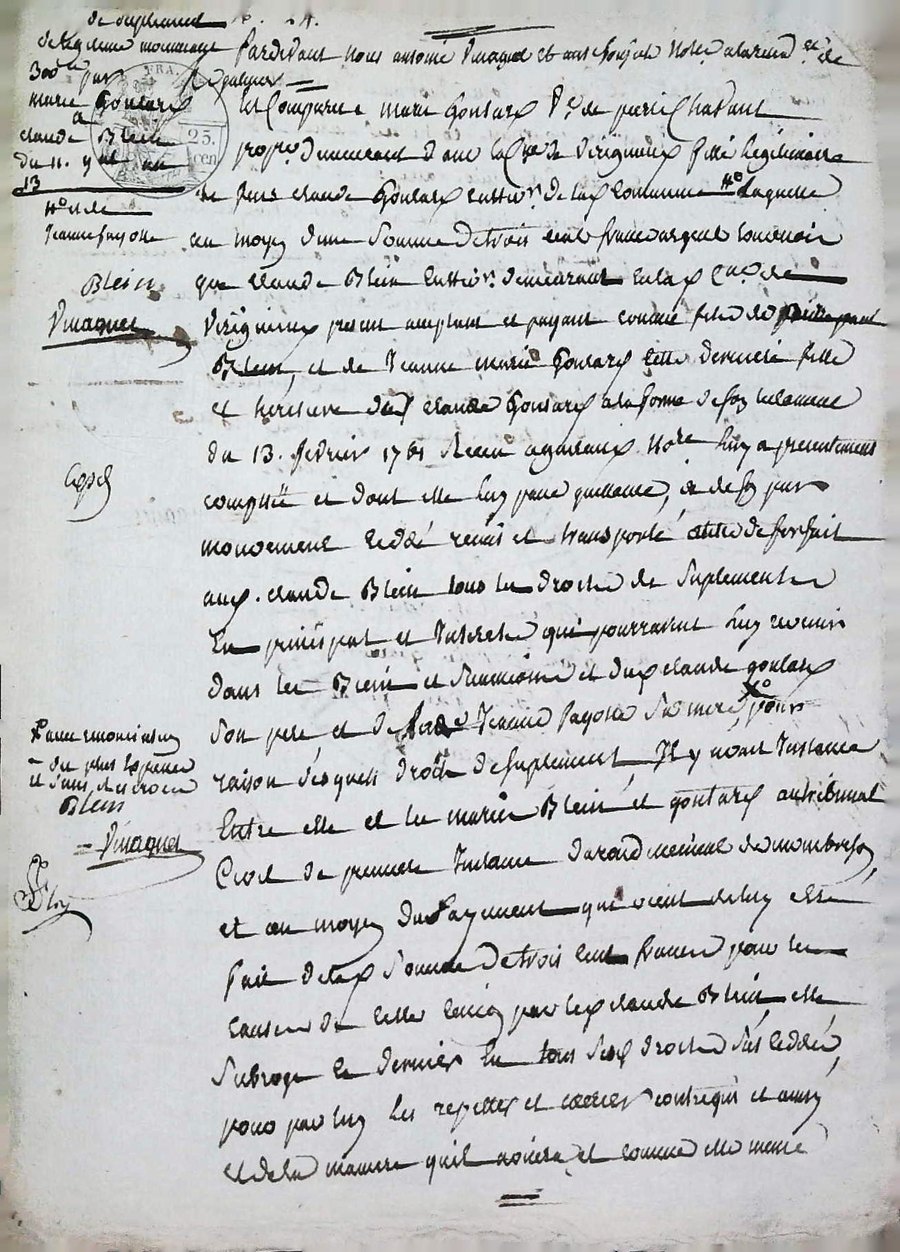 de suplement
de legitime moyennant
300 ll par
marie Goutard
a
claude Blein
du 11. g.al an
13
#° et de
Jeanne fayolle
Blein
Vinagnet
Expéd
FRA.
25.
cen
Pardevant nous antoine Vinagnet et notre
est Comparue marie Goutard V.e de pierre
propre demeurant dans la C.ne de Virignieux fille legitimaire
de feux claude Goutard cultiv.r de lad Commune #° Laquelle
au moyen d'une Somme de trois cent francs argent
que claude Blein cultiv.r demeurant en lad C.ne de
Virignieux present acceptant et payant comme fils de
Blein, et de Jeanne marie Goutard cette derniere fille
et heritiere dud claude Goutard a la forme de son testament
du 13. fevrier 1761 Recu Not.re luy a presentement
comptée et dont elle luy passe quittance, a de son pur
mouvement ceddé remis et transporté, a titre de forfait
aud. claude Blein tous les droits de Suplement
En principal et Interets qui pourraient luy revenir
dans les Biens et Successions et dud claude goutard
Son pere et de Jeanne fayolle Sa mere, X° pour
raison desquels droits de Suplement Il y avait Instance
Entre elle et les mariés Blein et goutard au tribunal
Civil de premiere Instance d'arrondissement de montbrison,
et au moyen du Payement qui vient de luy etre
fait de lad Somme de trois cent francs pour les
causes de celle cy par led claude Blein elle
Subroge ce dernier En tous Sesd droits Sus ceddés,
pour par luy les repetter et exercer contre qui et ainsy
et de la maniere qu'il avisera et comme elle meme
X° avec renonciation
au plus
et a tous droits
Blein
Vinagnet